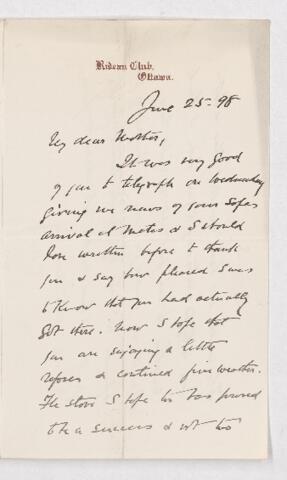 Rideau Club,
Ottawa.
June 25th 98
My dear Mother,
It was very good
of you to telegraph on Wednesday
giving me news of your safe
arrival at Metis & I should
have written before to thank
you & say how pleased I was
to know that you had actually
got there. Now I hope that
you are enjoying a little
repose & continued fine weather.
The stove I hope too has proved
to be a success & not too